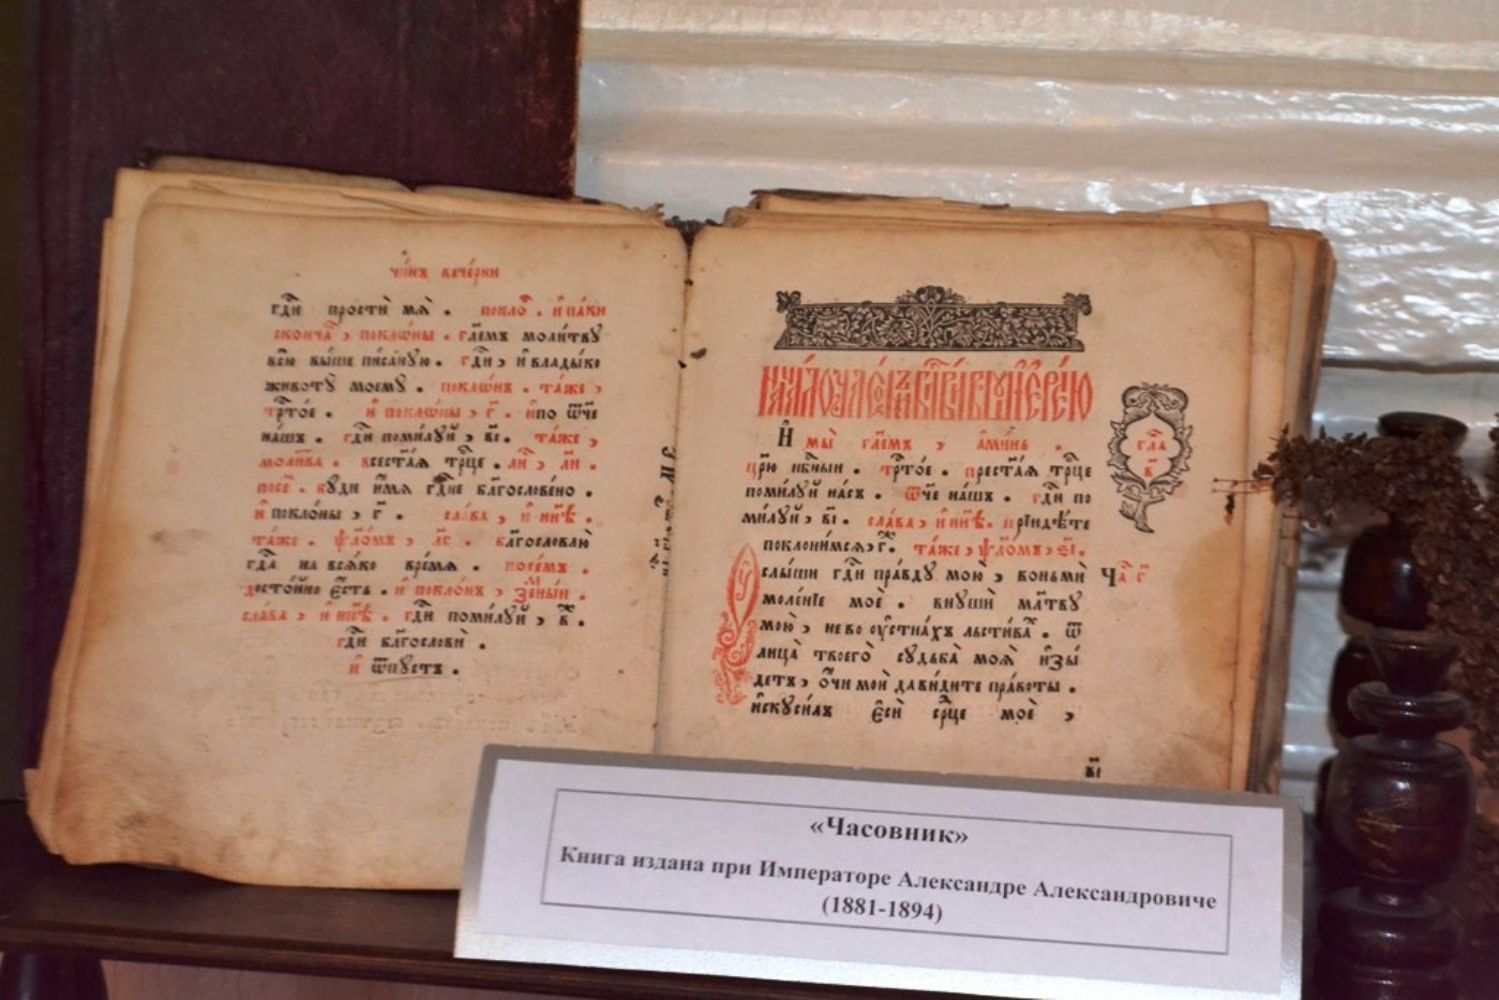 чи́нъ вече́рни
гдⷭ҇и прости́ мѧ̀ . покло̀ . и҆ па́ки
сконча̀ , покло́ны . гл҃емъ моли́твꙋ
всю̀ вы́ше пи́санꙋю . гдⷭ҇и , и҆ влады́ко
животꙋ̀ моемꙋ̀ . покло́нъ . та́же ,
трⷭ҇то́е . и҆ покло́ны , г҃ . и҆по ѿче
на́шъ . гдⷭ҇и поми́лꙋй , в҃і . та́же ,
моли́тва . всест҃а́ѧ трⷪ҇це .
бꙋ́ди и҆́мѧ гдⷭ҇не блгⷭ҇ослове́но .
и҆ покло́ны , г҃ . сла́ва , и҆ ны́нѣ .
та́же . ѱало́мъ , л҃г . блгⷭ҇ословлю̀
гдⷭ҇а на всѧ́ко вре́мѧ . посе́мъ .
досто́йно є҆́сть . и҆ покло́нъ , земны́й .
сла́ва , и҆ ны́нѣ . гдⷭ҇и поми́лꙋй , в҃ .
гдⷭ҇и блгⷭ҇ословѝ .
и҆ ѿпꙋстъ .
И҆ мы̀ гл҃емъ , а҆ми́нь .
цр҃ю нбⷭ҇ный . трⷭ҇то́е . прест҃а́ѧ трⷪ҇це
поми́лꙋй на́съ . ѿче на́шъ . гдⷭ҇и по
ми́лꙋй , в҃і . сла́ва , и҆ ны́нѣ . прїиди́те
поклони́мсѧ , г҃ . та́же , ѱало́мъ , р҃мв .
Оу҆слы́ши гдⷭ҇и пра́вдꙋ мою̀ , вонмѝ
моле́нїе моѐ . внꙋшѝ мл҃твꙋ
мою̀ , не во оу҆стна́хъ льсти́вых . ѿ
лица̀ твоегѡ̀ сꙋдьба̀ моѧ̀ и҆зы́
детъ , о҆́чи мои̑ да ви́дите правоты̀ .
и҆скꙋси́лъ є҆сѝ срⷣце моѐ ,
в҃і
«Часовник»
Книга издана при Императоре Александре Александровиче
(1881-1894)